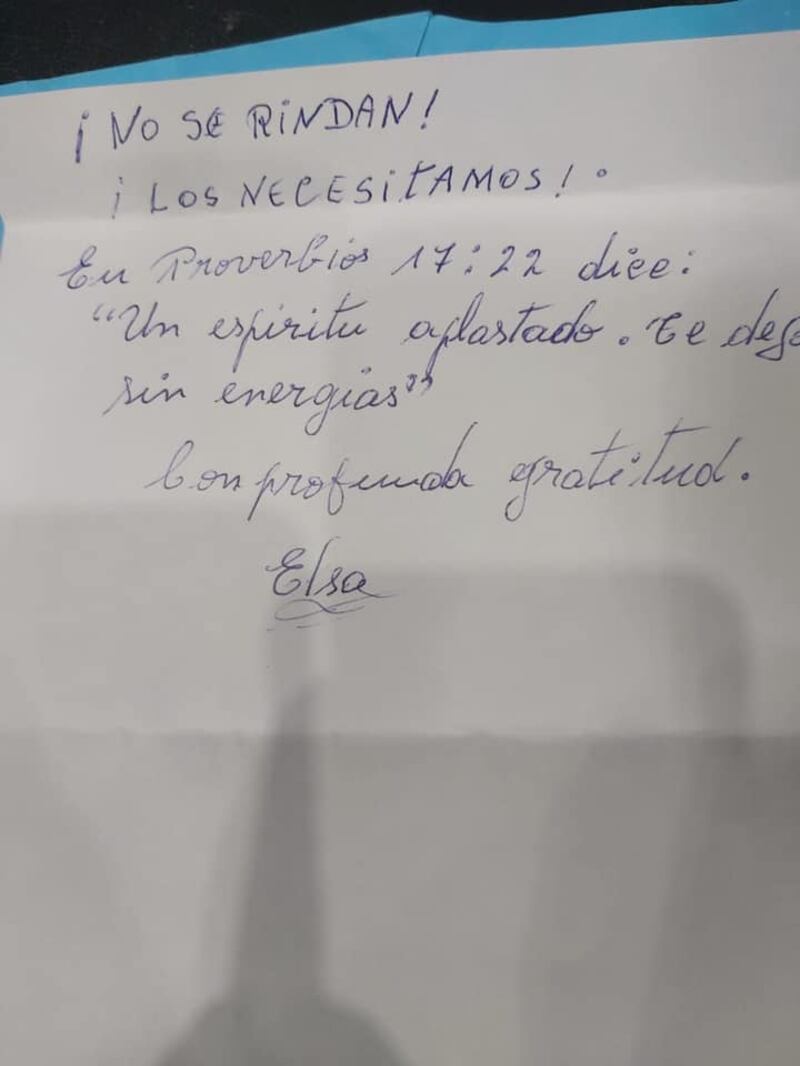 ¡ NO SE RINDAN!
¡ LOS NECESITAMOS! .
En Proverbios 17:22 dice:
"Un espíritu aplastado. te
sin energías"
Con profunda gratitud.
Elsa